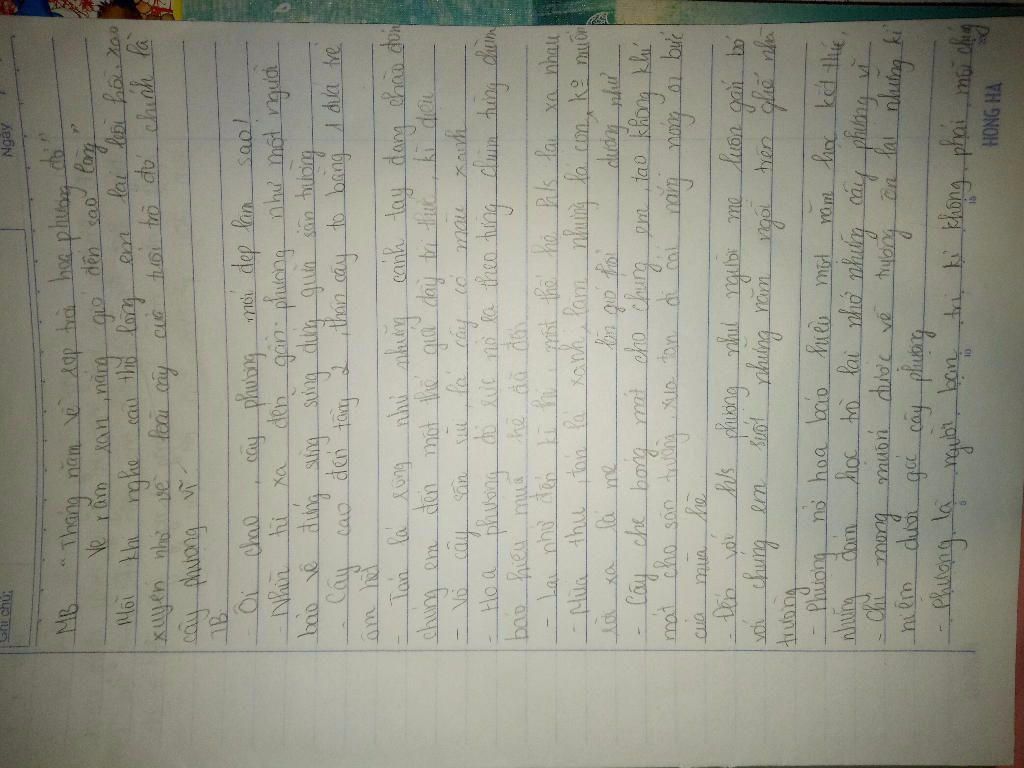 Ngày
Ghi chú:
MB "Tháng năm về rạp trời hoa phượng đỏ
Ve râm ran nắng gió đến sao lòng"
Mỗi khi nghe câu thơ lòng em lại bồi hồi xao
xuyến nhớ về loài cây của tuổi trò đó chính là
cây phượng vĩ
TB.
- Ôi chao, cây phượng mới đẹp làm sao!
- Nhìn từ xa đến gần: phượng như một người
bảo vệ đứng sừng sững đứng giữa sân trường
- Cây cao đến tầng 2, thân cây to bằng 1 đứa trẻ
ôm hết
- Tán lá rộng như những cánh tay đang chào đón
chúng em đến một thế giới đầy tri thức, kì diệu
- Vỏ cây sần sùi, lá cây có màu xanh
- Hoa phượng đỏ rực nở ra theo từng chùm
báo hiệu mùa hè đã đến
- Lại nhớ đến kì thi, một thế hệ h/s lại xa nhau
- Mùa thu, tán lá xanh, làm những lá con, ko muốn
rời xa lá mẹ
- Cây che bóng mát cho chúng em, tạo không khí
mát cho sân trường, xua tan đi cái nóng nong oi bức
của mùa hè
- Đến với h/s phượng như người mẹ luôn gắn bó
với chúng em suốt những năm ngồi trên ghế nhà
trường
- Phượng nở hoa báo hiệu một năm học kết thúc,
những đám học trò lại nhớ những cây phượng vĩ
- Chỉ mong muốn được về trường ôn lại những kỉ
niệm dưới gốc cây phượng
- Phượng là người bạn tri kỉ không phai mỗi chúng
HONG HA